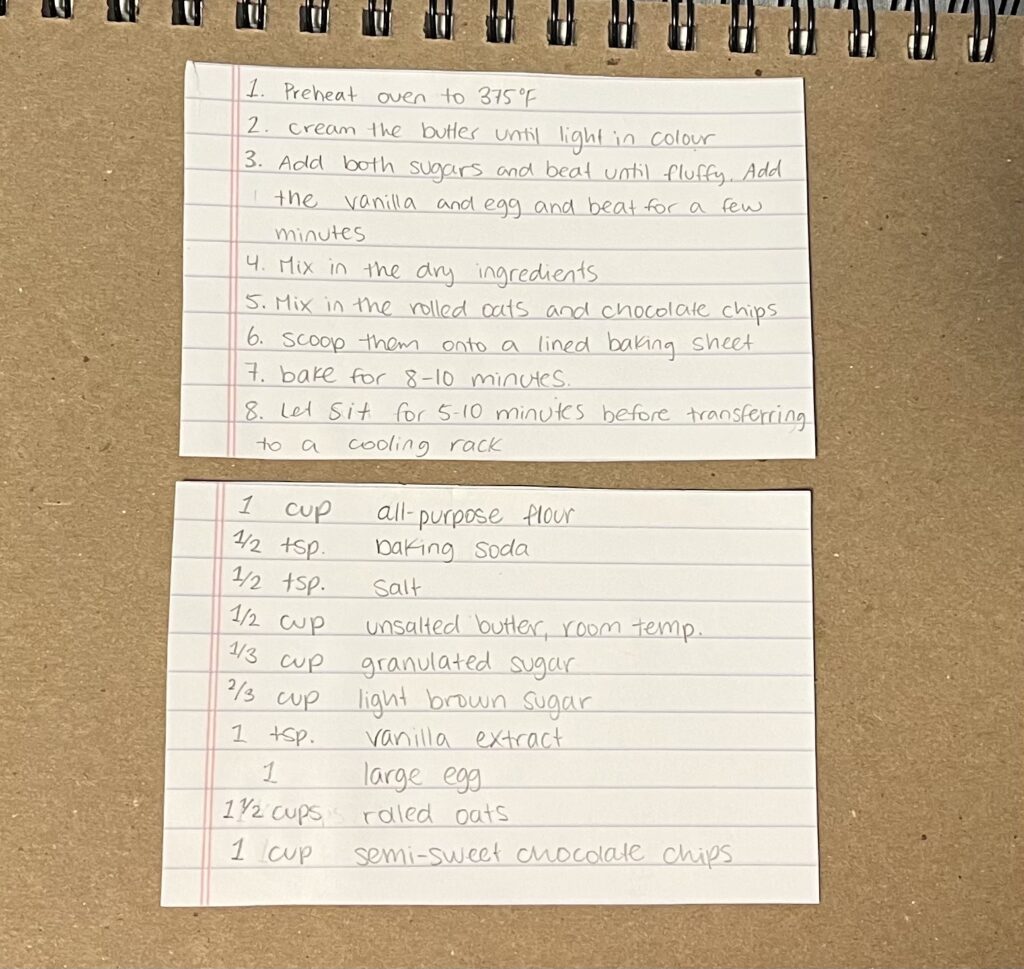 1. Preheat oven to 375°F
2. cream the butter until light in colour
3. Add both sugars and beat until fluffy. Add
the vanilla and egg and beat for a few
minutes
4. Mix in the dry ingredients
5. Mix in the rolled oats and chocolate chips
6. scoop them onto a lined baking sheet
7. bake for 8-10 minutes.
8. Let sit for 5-10 minutes before transferring
to a cooling rack
1 cup all-purpose flour
1/2 tsp. baking soda
1/2 tsp. salt
1/2 cup unsalted butter, room temp.
1/3 cup granulated sugar
2/3 cup light brown sugar
1 tsp. vanilla extract
1 large egg
1 1/2 cups rolled oats
1 cup semi-sweet chocolate chips